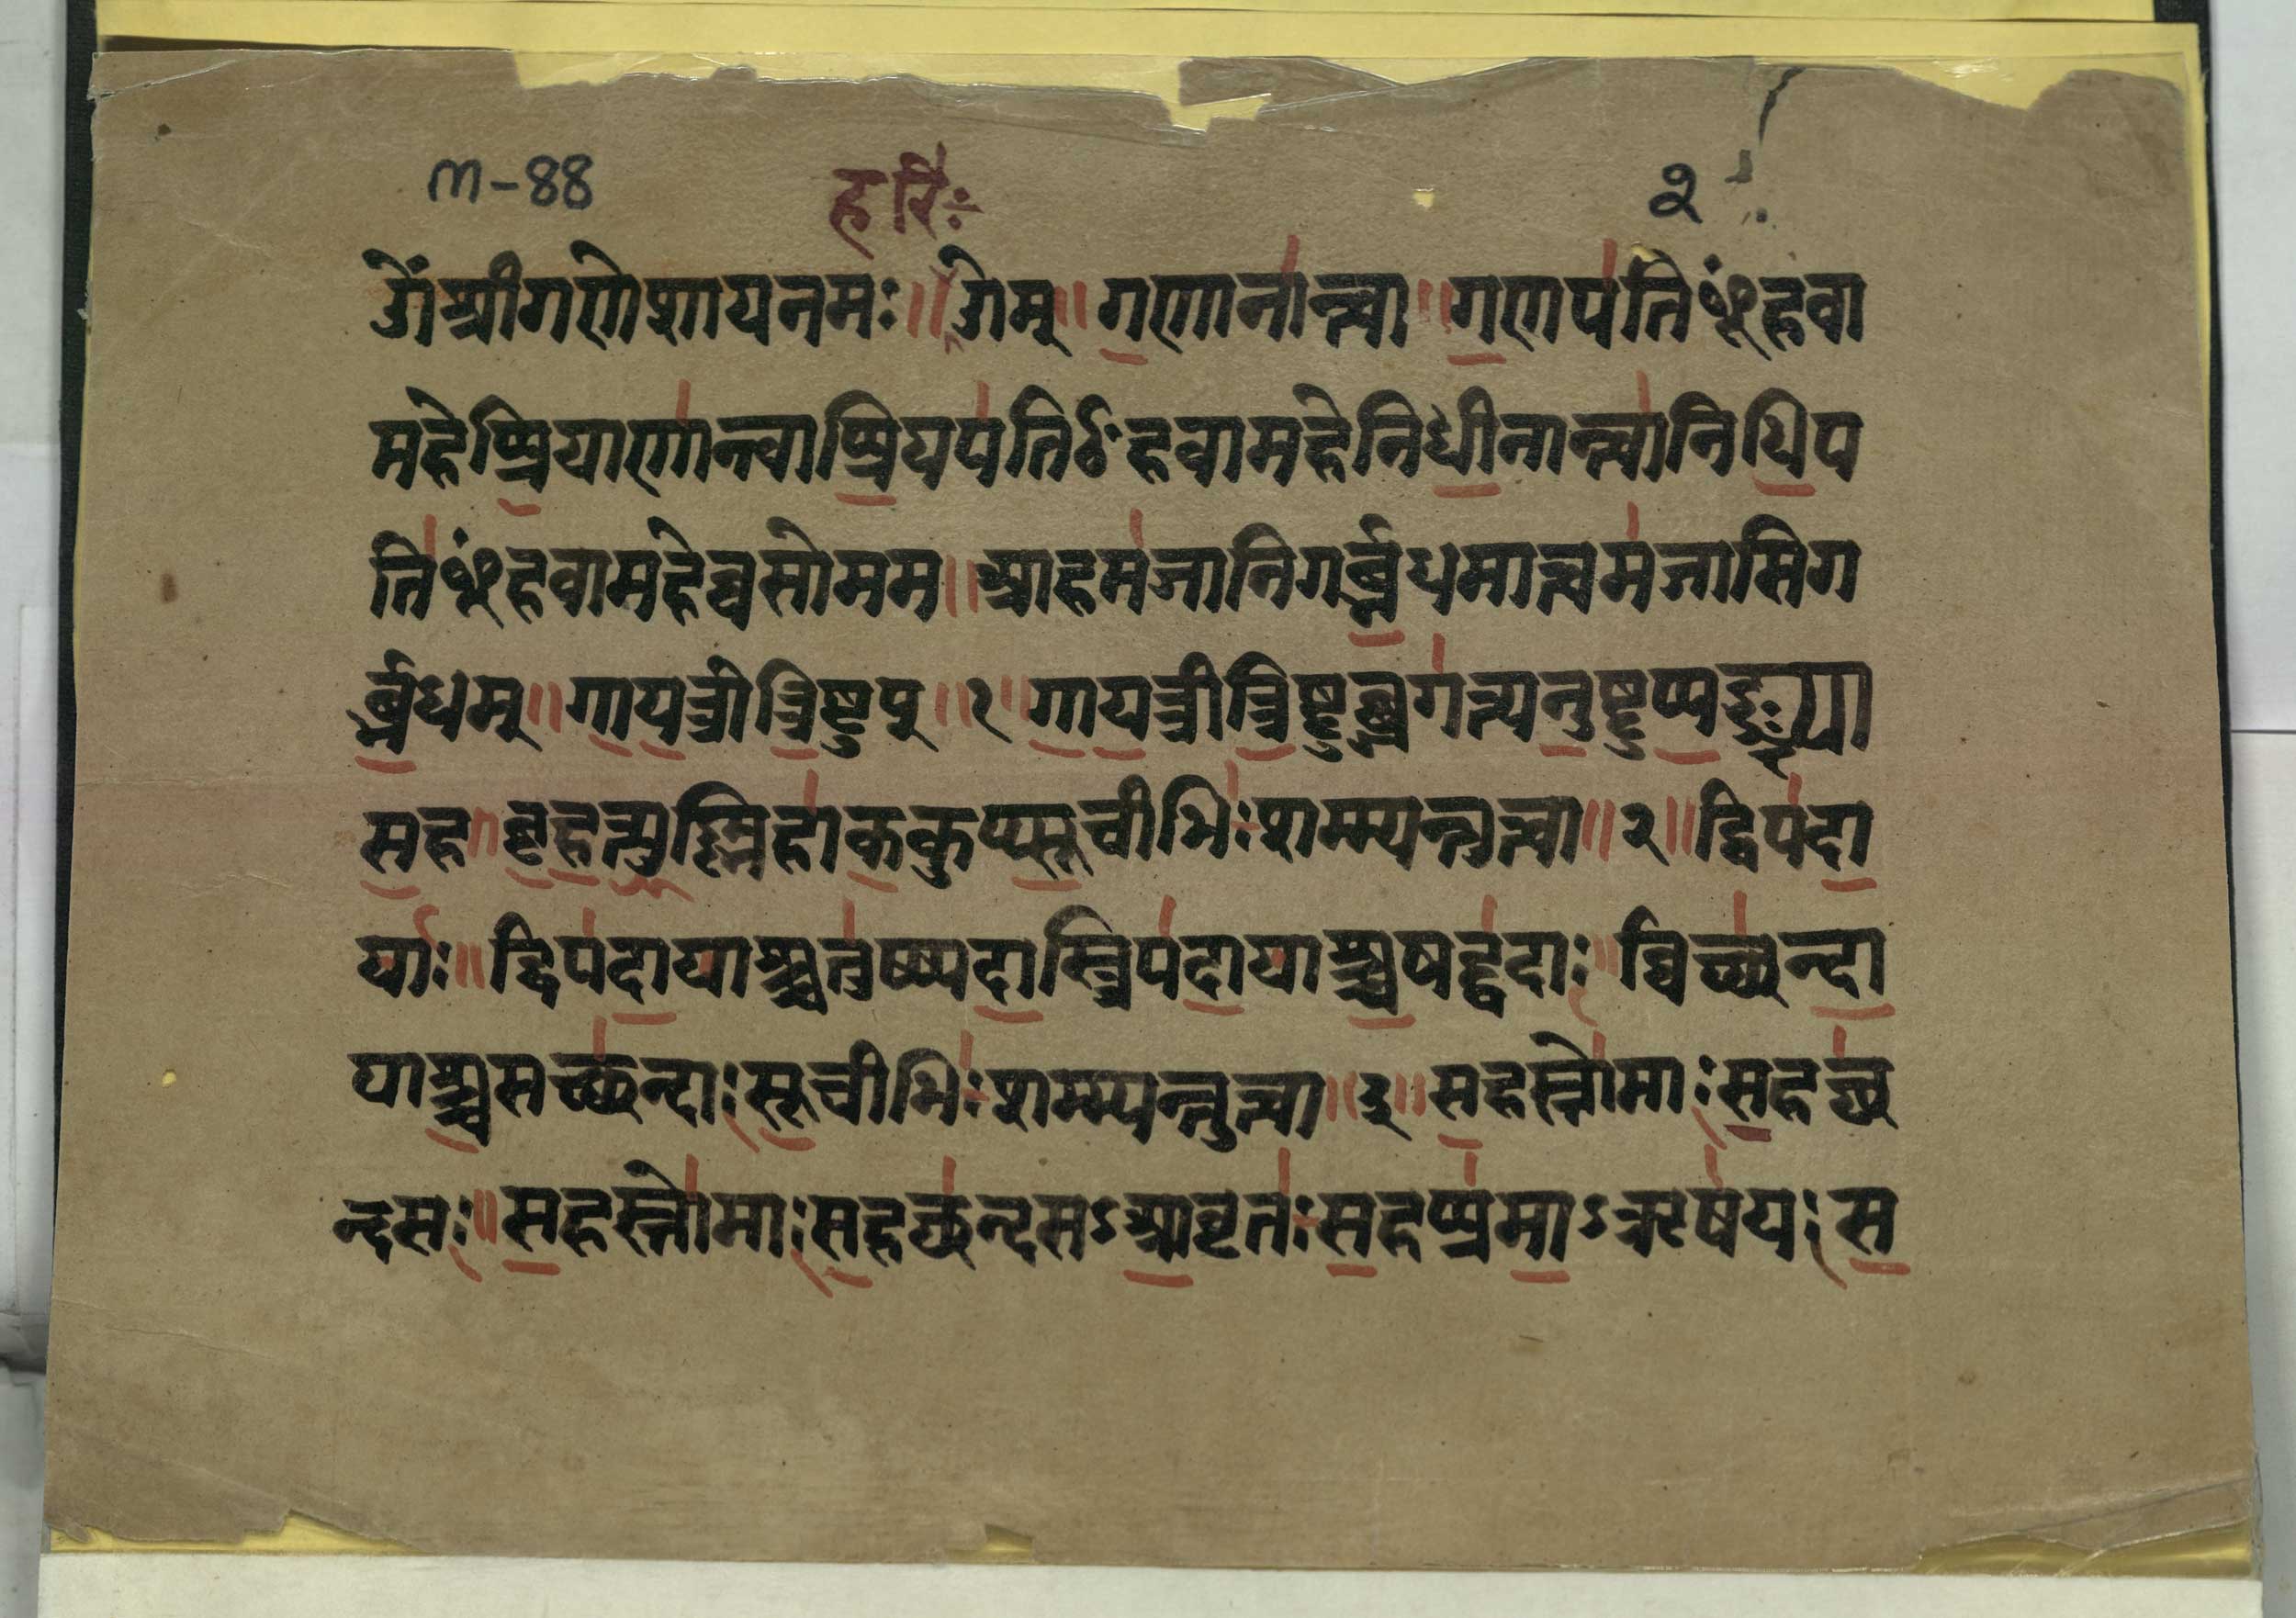 m-88 हरिः॑ २
ॐश्रीगणेशायनमः॥ ओम्॥ ग॒णाना॑न्त्वा॥ ग॒णप॑तिᳪहवा
महेप्प्रि॒याणा॑न्त्वाप्प्रि॒यप॑तिᳪहवामहेनिधी॒नान्त्वा॑निधि॒प
ति॑ᳪहवामहेव्वसोमम॥ आहम॑जानिगर्ब्भ॒धमात्वम॑जासिग
र्ब्भ॒धम्॥ गा॒य॒त्रीत्रि॒ष्टुप्॥१॥ गा॒य॒त्रीत्रि॒ष्टुब्ज॑गत्यनु॒ष्टुप्प॒ङ्क्त्या
स॒ह॥ बृ॒ह॒त्यु॒ष्णिहा॑क॒कुप्प्सू॒चीभिः॑शम्म्यन्तुत्वा॥२॥ द्विप॑दा॒
याः॑॥ द्विप॑दा॒याश्चतु॑ष्प्पदा॒स्त्रिप॑दा॒याश्च॒षट्प॑दाः॥ व्विच्छ॑न्दा॒
याश्च॒सच्छ॑न्दाःसू॒चीभिः॑शम्म्यन्तुत्वा॥३॥ स॒हस्तो॑माःस॒हच्छ॑
न्दसः॥ स॒हस्तो॑माःस॒हच्छ॑न्दसऽआ॒वृतः॑स॒हप्प्र॑मा॒ऽऋष॑यःस॒